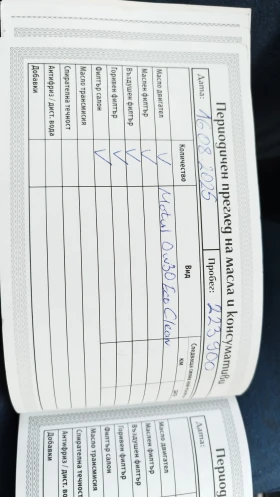 Периодичен преглед на масла и консумативи
Дата: 16.08.2025 Пробег: 223900
Количество Вид
Масло двигател ✓ Motul 0w30 Eco Clean
Маслен филтър ✓
Въздушен филтър ✓
Горивен филтър ✓
Филтър салон ✓
Масло трансмисия
Спирателна течност
Антифриз / дист. вода
Добавки
Период
Дата:
Масло двигател
Маслен филтър
Въздушен филтър
Горивен филтър
Филтър салон
Масло трансмисия
Спирателна течност
Антифриз / дист. во
Добавки